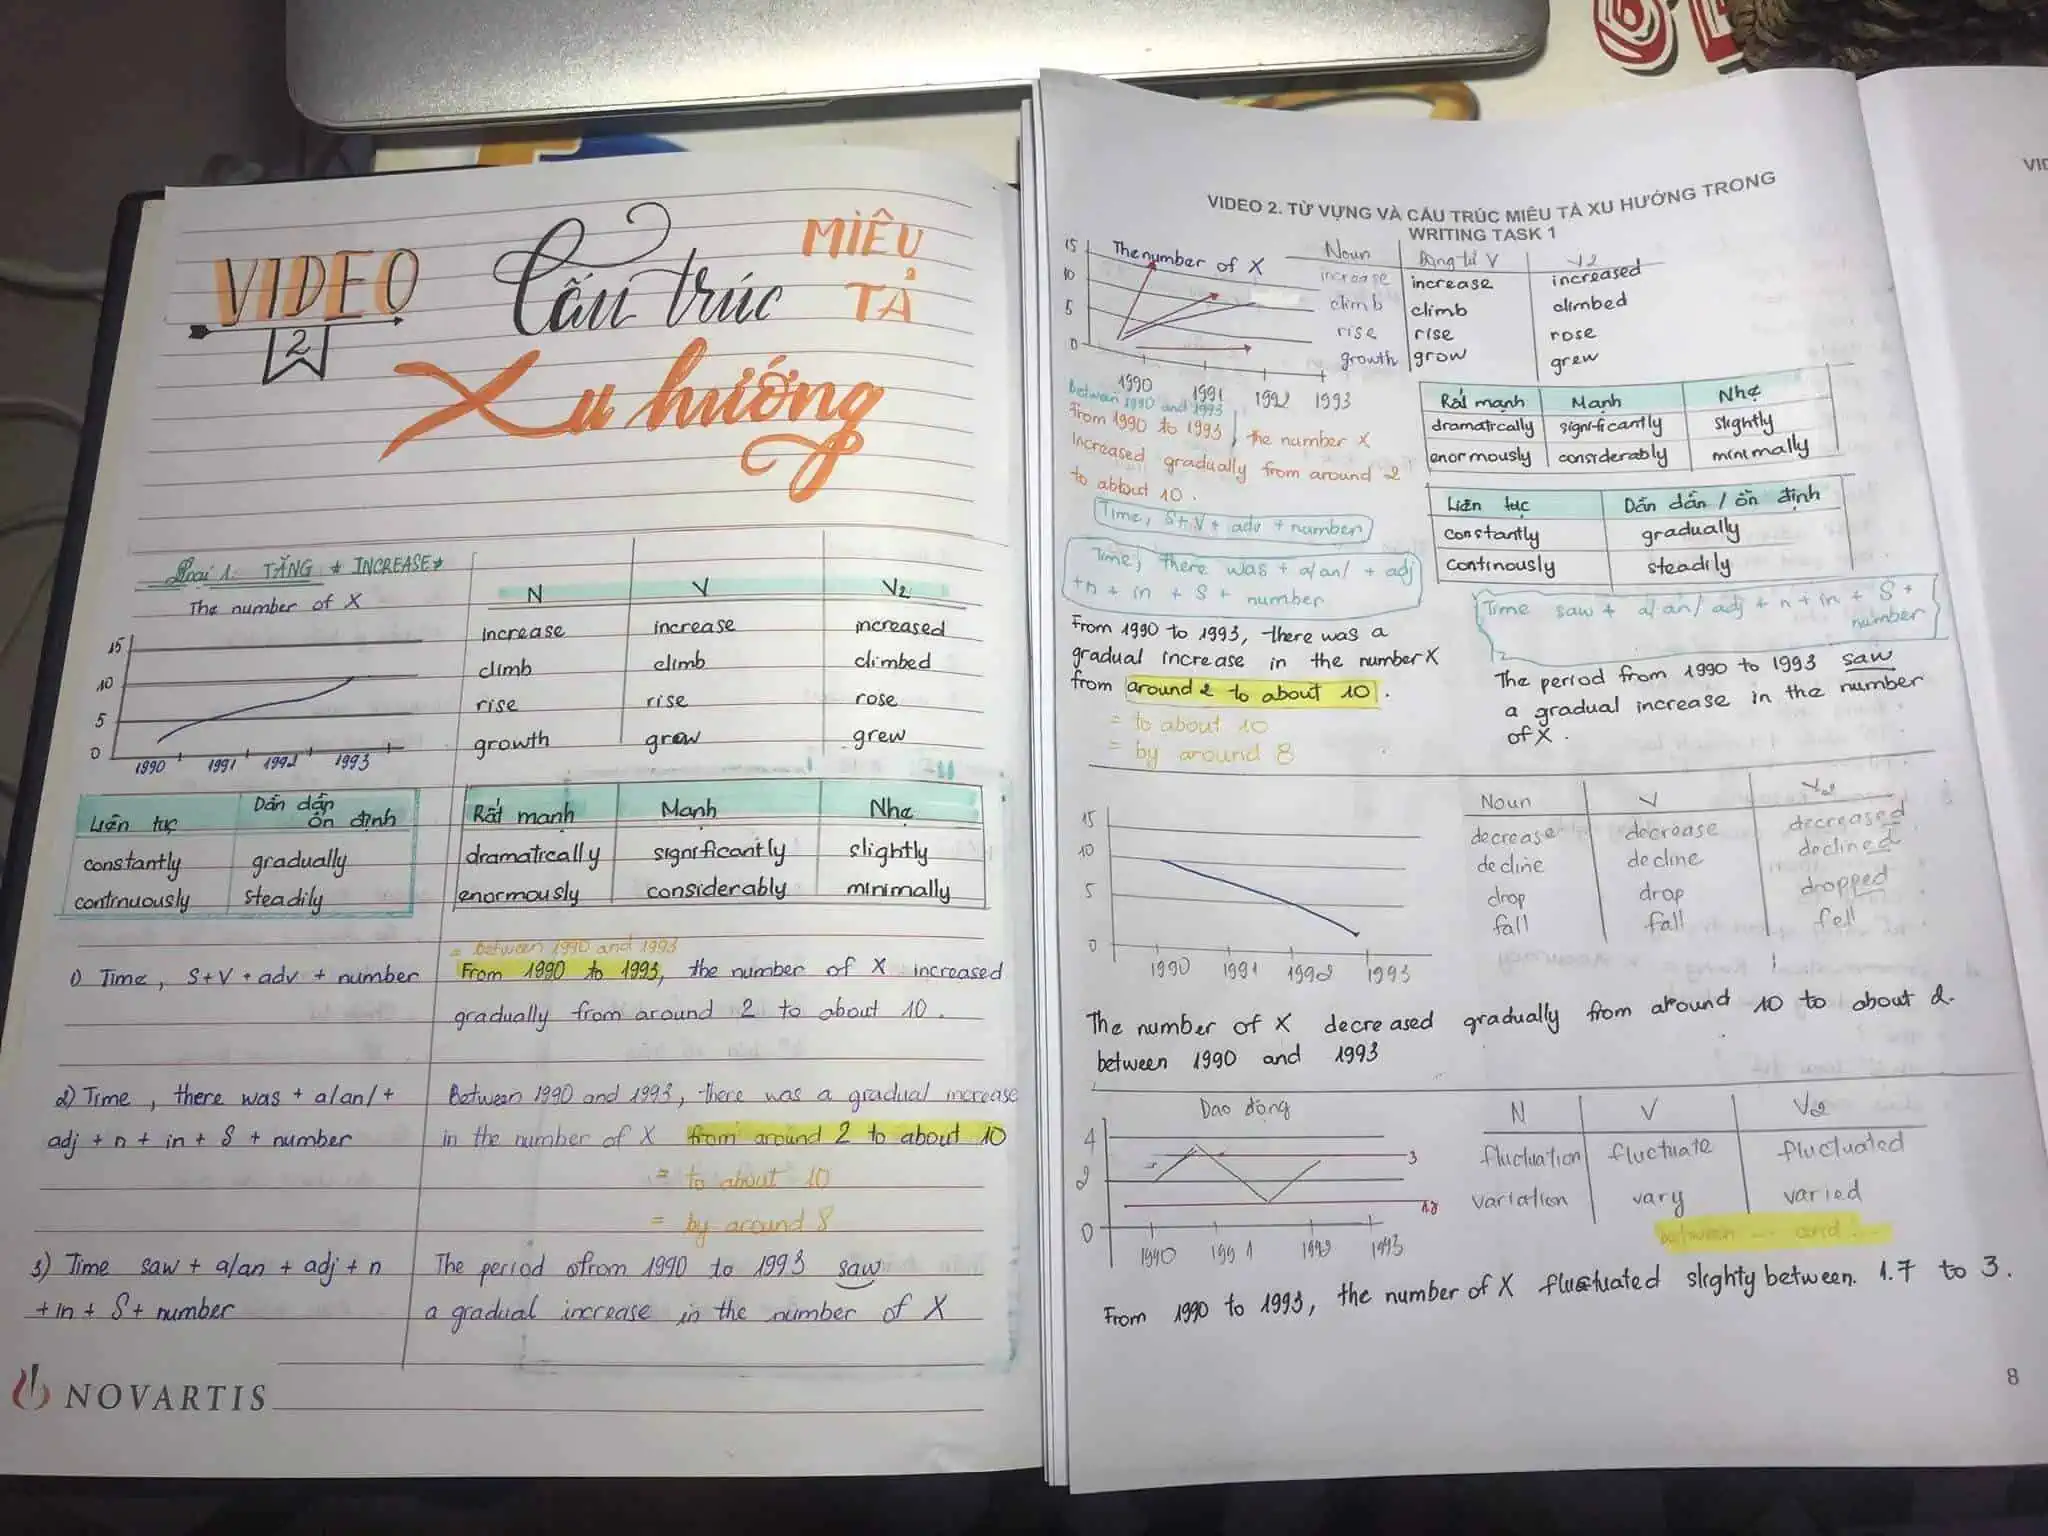 VIDEO
2
Cấu trúc
MIÊU
TẢ
Xu hướng
Loại 1. TĂNG * INCREASE*
The number of X
15
10
5
0
1990 1991 1992 1993
N V V2
increase increase increased
climb climb climbed
rise rise rose
growth grow grew
Liên tục Dần dần ổn định
constantly gradually
continuously steadily
Rất mạnh Mạnh Nhẹ
dramatically significantly slightly
enormously considerably minimally
= between 1990 and 1993
1) Time, S+V+adv+number
From 1990 to 1993, the number of X increased
gradually from around 2 to about 10.
2) Time, there was + a/an/ +
adj + n + in + S + number
Between 1990 and 1993, there was a gradual increase
in the number of X from around 2 to about 10
= to about 10
= by around 8
3) Time saw + a/an + adj + n
+ in + S + number
The period ofrom 1990 to 1993 saw
a gradual increase in the number of X
NOVARTIS
VIDEO 2. TỪ VỰNG VÀ CẤU TRÚC MIÊU TẢ XU HƯỚNG TRONG
WRITING TASK 1
15
10
5
0
The number of X
1990 1991 1992 1993
Noun Động từ V V2
increase increase increased
climb climb climbed
rise rise rose
growth grow grew
Between 1990 and 1993
From 1990 to 1993, the number X
increased gradually from around 2
to abbout 10.
Time, S+V+adv+number
Time, there was + a/an/ + adj
+n + in + S + number
From 1990 to 1993, there was a
gradual increase in the number X
from around 2 to about 10.
= to about 10
= by around 8
Rất mạnh Mạnh Nhẹ
dramatically significantly slightly
enormously considerably minimally
Liên tục Dần dần / ổn định
constantly gradually
continously steadily
Time saw + a/an/ adj + n + in + S +
number
The period from 1990 to 1993 saw
a gradual increase in the number
of X.
15
10
5
0
1990 1991 1992 1993
Noun V V2
decrease decrease decreased
decline decline declined
drop drop dropped
fall fall fell
The number of X decreased gradually from around 10 to about 2.
between 1990 and 1993
Dao động
4
2
0
3
1990 1991 1992 1993
N V V2
fluctuation fluctuate fluctuated
variation vary varied
between ... and ...
From 1990 to 1993, the number of X fluctuated slighty between. 1.7 to 3.
8